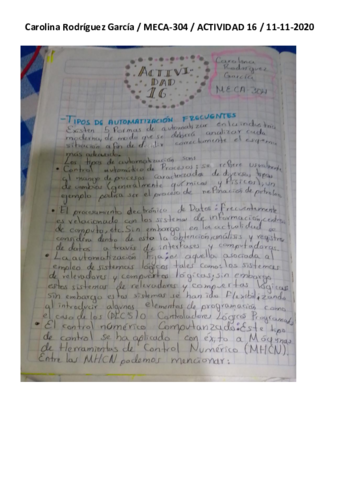 Carolina Rodríguez García / MECA-304 / ACTIVIDAD 16 / 11-11-2020
ACTIVI-
DAD
16
Carolina
Rodríguez
García
MECA 304
-TIPOS DE AUTOMATIZACIÓN FRECUENTES
Existen 5 formas de automatizar
de modo que se deberá analizar cada
situación a fin de
más adecuado
Los tipos de automatización son:
• Control automático de Procesos: se refiere
al manejo de procesos caracterizados de diversos tipos
de cambios (generalmente químicos y físicos), un
ejemplo podría ser el proceso de refinación de petróleo
• El procesamiento electrónico de Datos: Frecuentemente
es relacionado con los sistemas de información, centros
de computo, etc. Sin embargo en la actualidad
considera dentro de esto la obtención, análisis y registro
de datos a través de interfaces y computadoras
• La automatización fija: es aquella asociada al
empleo de sistemas lógicos tales como los sistemas
de relevadores y compuertas lógicas; sin embargo
estos sistemas de relevadores y compuertas lógicas
sin embargo estos sistemas se han ido flexibilizando
al introducir algunos elementos de programación como
el caso de los (PLC'S) o Controladores Lógicos Programables
• El control numérico Computarizado: Este tipo
de control se ha aplicado con éxito a Máquinas
de Herramientas de Control Numérico (MHCN).
Entre las MHCN podemos mencionar: